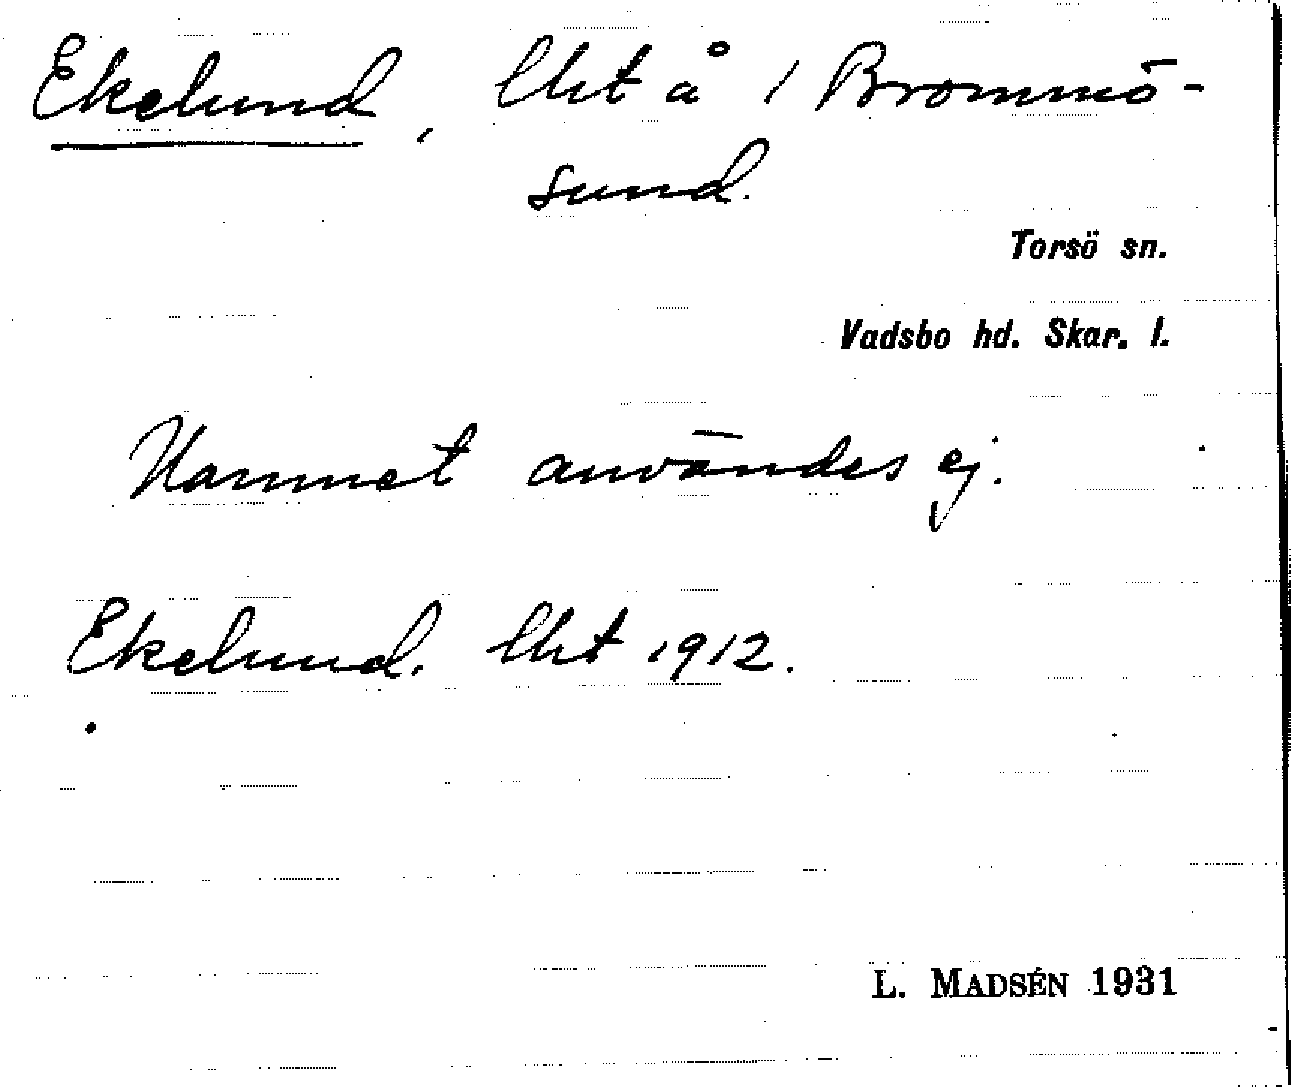 Ekelund, lht å 1 Brommö-
sund.
Torsö sn.
Vadsbo hd. Skar. l.
Namnet användes ej.
Ekelund. lht 1912.
L. MADSÉN 1931